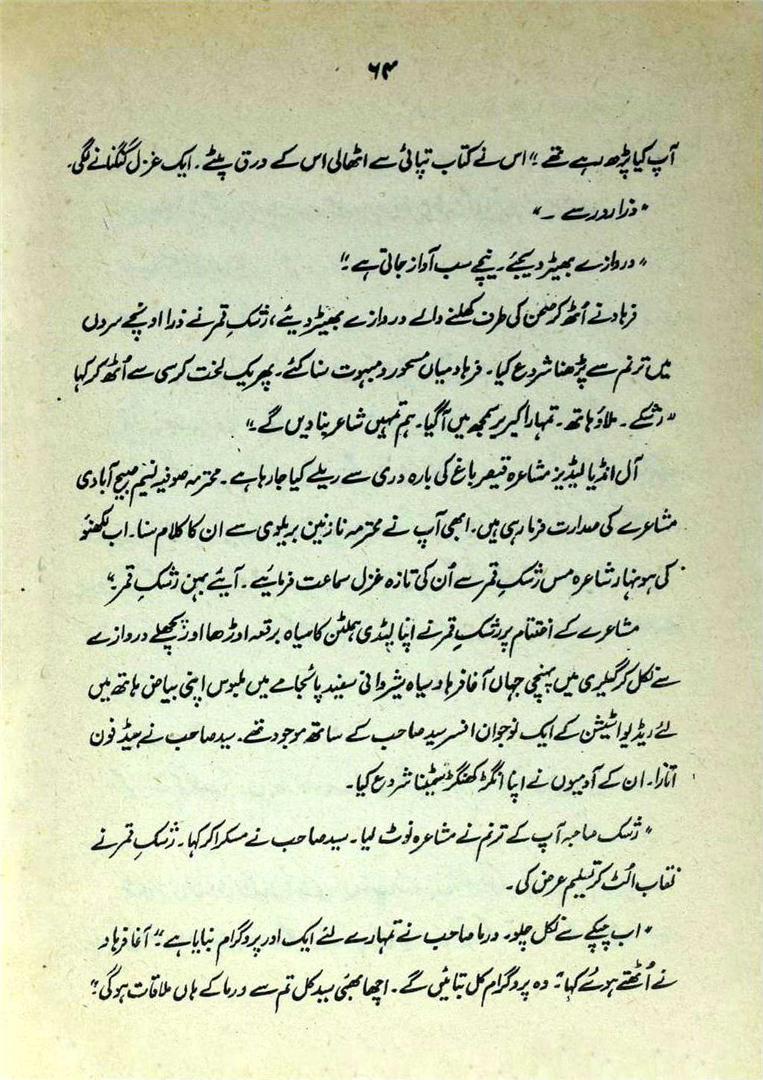 ۶۴
آپ کیا پڑھ رہے تھے؟" اس نے کتاب تپائی سے اٹھالی اس کے ورق پلٹے۔ ایک غزل گنگنانے لگی۔
"ذرا زور سے ۔"
"دروازے بھیڑ دیجئے۔ نیچے سب آواز جاتی ہے۔"
فرہاد نے اُٹھ کر صحن کی طرف کھلنے والے دروازے بھیڑ دیئے، رشکِ قمر نے ذرا اونچے سروں
میں ترنم سے پڑھنا شروع کیا۔ فرہاد میاں مسحور و مبہوت سنا کئے۔ پھر یک لخت کرسی سے اُٹھ کر کہا
"رشکے۔ ملاؤ ہاتھ۔ تمہارا کیریر سمجھ میں آگیا۔ ہم تمہیں شاعر بنا دیں گے۔"
آل انڈیا لیڈیز مشاعرہ قیصر باغ کی بارہ دری سے ریلے کیا جا رہا ہے۔ محترمہ صوفیہ نسیم صبیح آبادی
مشاعرے کی صدارت فرما رہی ہیں۔ ابھی آپ نے محترمہ نازنین بریلوی سے ان کا کلام سنا۔ اب لکھنؤ
کی ہونہار شاعرہ مس رشکِ قمر سے اُن کی تازہ غزل سماعت فرمائیے۔ آیئے بہن رشکِ قمر۔"
مشاعرے کے اختتام پر رشکِ قمر نے اپنا لیڈی ہملٹن کا سیاہ برقعہ اوڑھا اور پچھلے دروازے
سے نکل کر گیلری میں پہنچی جہاں آغا فرہاد سیاہ شیروانی سفید پائجامے میں ملبوس اپنی بیاض ہاتھ میں
لئے ریڈیو اسٹیشن کے ایک نوجوان افسر سید صاحب کے ساتھ موجود تھے۔ سید صاحب نے ہیڈ فون
اتارا۔ ان کے آدمیوں نے اپنا انگڑ کھنگڑ سمیٹنا شروع کیا۔
"رشک صاحبہ آپ کے ترنم نے مشاعرہ لوٹ لیا۔ سید صاحب نے مسکرا کر کہا۔ رشکِ قمر نے
نقاب الٹ کر تسلیم عرض کی۔
"اب چپکے سے نکل چلو۔ ورما صاحب نے تمہارے لئے ایک اور پروگرام بنایا ہے۔" آغا فرہاد
نے اُٹھتے ہوئے کہا "وہ پروگرام کل بتائیں گے۔ اچھا بھئی سید کل تم سے ورما کے ہاں ملاقات ہوگی۔"